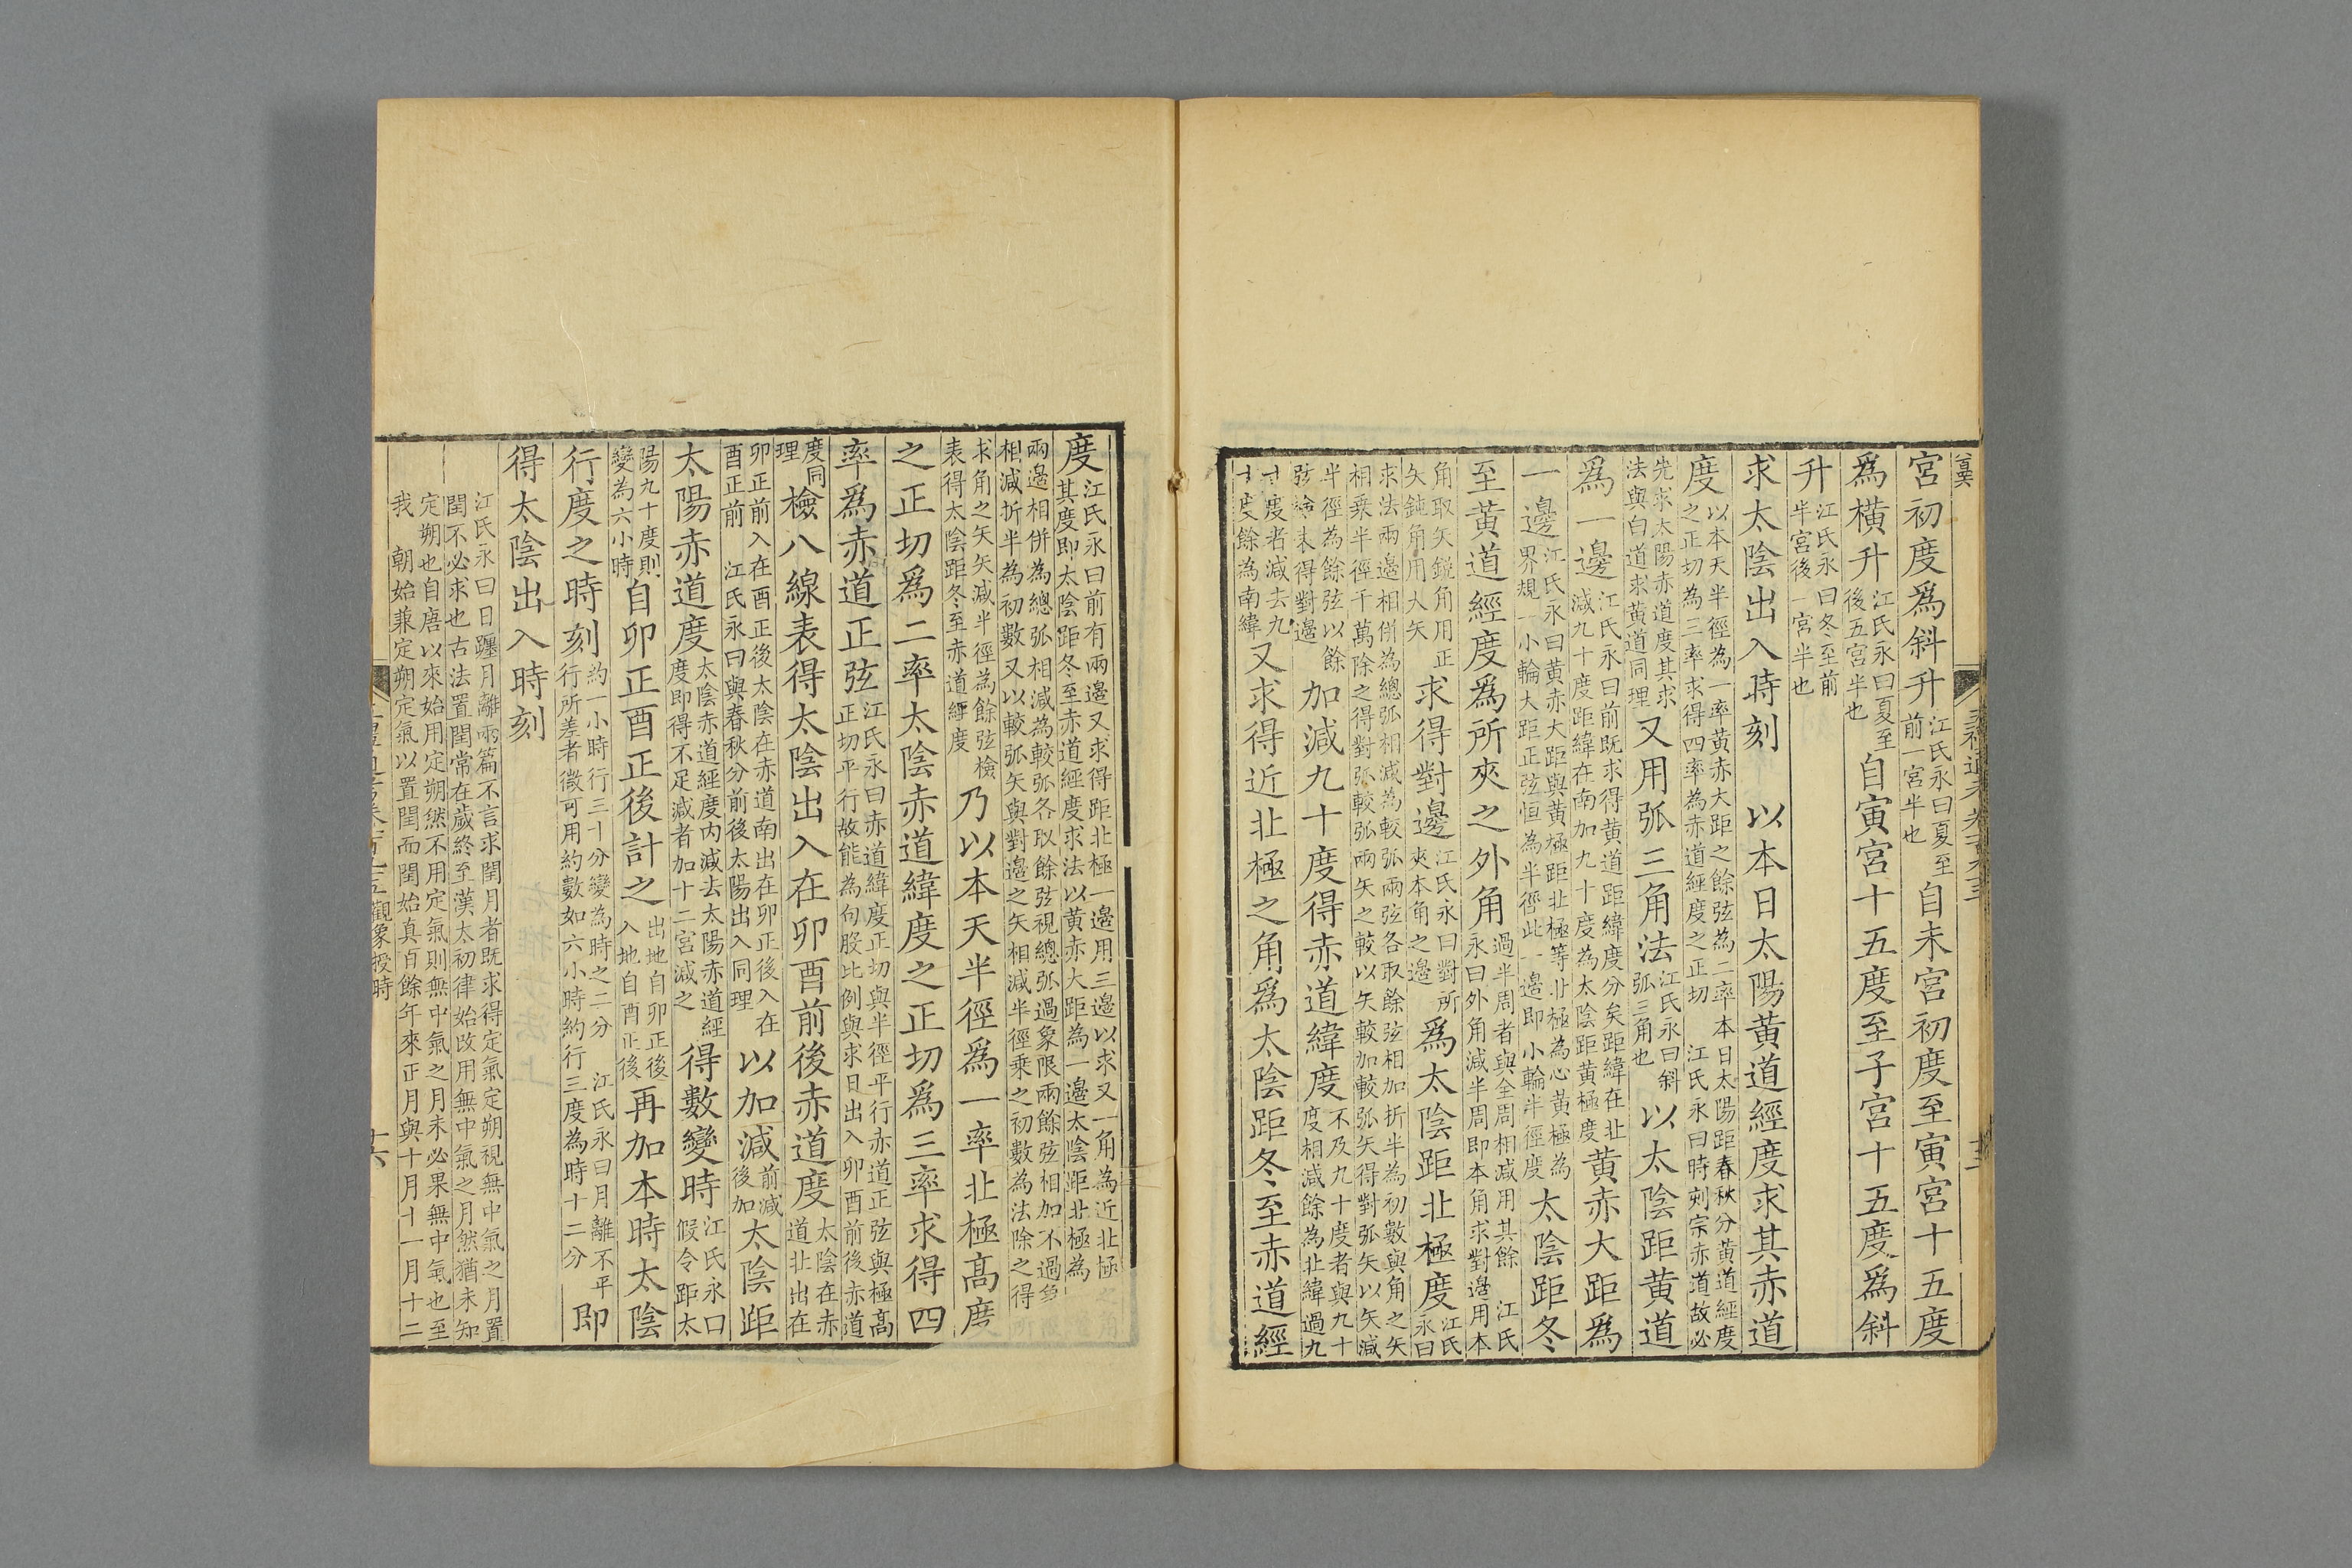 宮初度爲斜升江氏永曰夏至前一宮半也自未宮初度至寅宮十五度
爲橫升江氏永曰夏至後五宮半也自寅宮十五度至子宮十五度爲斜
升江氏永曰冬至前半宮後一宮半也
求太陰出入時刻以本日太陽黃道經度求其赤道
度以本天半徑為一率黃赤大距之餘弦為二率本日太陽距春秋分黃道經度之正切為三率求得四率為赤道經度之正切江氏永曰時刻宗赤道故必
先求太陽赤道度其求法與白道求黃道同理又用弧三角法江氏永曰斜弧三角也以太陰距黃道
爲一邊江氏永曰前既求得黃道距緯度分矣距緯在北減九十度距緯在南加九十度為太陰距黃極度黃赤大距爲
一邊江氏永曰黃赤大距與黃極距北極等北極為心黃極為界規一小輪大距正弦恒為半徑此一邊即小輪半徑度太陰距冬
至黃道經度爲所夾之外角過半周者與全周相減用其餘江氏永曰外角減半周即本角求對邊用本
角取矢銳角用正矢鈍角用大矢求得對邊江氏永曰對所夾本角之邊爲太陰距北極度江氏永曰
求法兩邊相併為總弧相減為較弧兩弦各取餘弦相加折半為初數與角之矢
相乘半徑千萬除之得對弧較弧兩矢之較以矢較加較弧矢得對弧矢以矢減
半徑為餘弦以餘弦檢表得對邊加減九十度得赤道緯度不及九十度者與九十度相減餘為北緯過九
十度者減去九十度餘為南緯又求得近北極之角爲太陰距冬至赤道經
度江氏永曰前有兩邊又求得距北極一邊用三邊以求又一角為近北極其度即太陰距冬至赤道經度求法以黃赤大距為一邊太陰距北極為
兩邊相併為總弧相減為較弧各取餘弦視總弧過象限兩餘弦相加不過
相減折半為初數又以較弧矢與對邊之矢相減半徑乘之初數為法除之得
求角之矢矢減半徑為餘弦檢表得太陰距冬至赤道經度乃以本天半徑爲一率北極高度
之正切爲二率太陰赤道緯度之正切爲三率求得四
率爲赤道正弦江氏永曰赤道緯度正切與半徑平行赤道正弦與極高正切平行故能為句股比例與求日出入卯酉前後赤道
度同理檢八線表得太陰出入在卯酉前後赤道度太陰在赤道北出在
卯正前入在酉正後太陰在赤道南出在卯正後入在酉正前江氏永曰與春秋分前後太陽出入同理以加減前減後加太陰距
太陽赤道度太陰赤道經度内減去太陽赤道經度即得不足減者加十二宮減之得數變時江氏永曰假令距太
陽九十度則變為六小時自卯正酉正後計之出地自卯正後入地自酉正後再加本時太陰
行度之時刻約一小時行三十分變為時之二分江氏永曰月離不平行所差者微可用約數如六小時約行三度為時十二分即
得太陰出入時刻
江氏永曰日躔月離兩篇不言求閏月者既求得定氣定朔視無中氣之月置
閏不必求也古法置閏常在歲終至漢太初律始改用無中氣之月然猶未知
定朔也自唐以來始用定朔然不用定氣則無中氣之月未必果無中氣也至
我朝始兼定朔定氣以置閏而閏始真自餘年來正月與十月十一月十二
觀象授時
十六